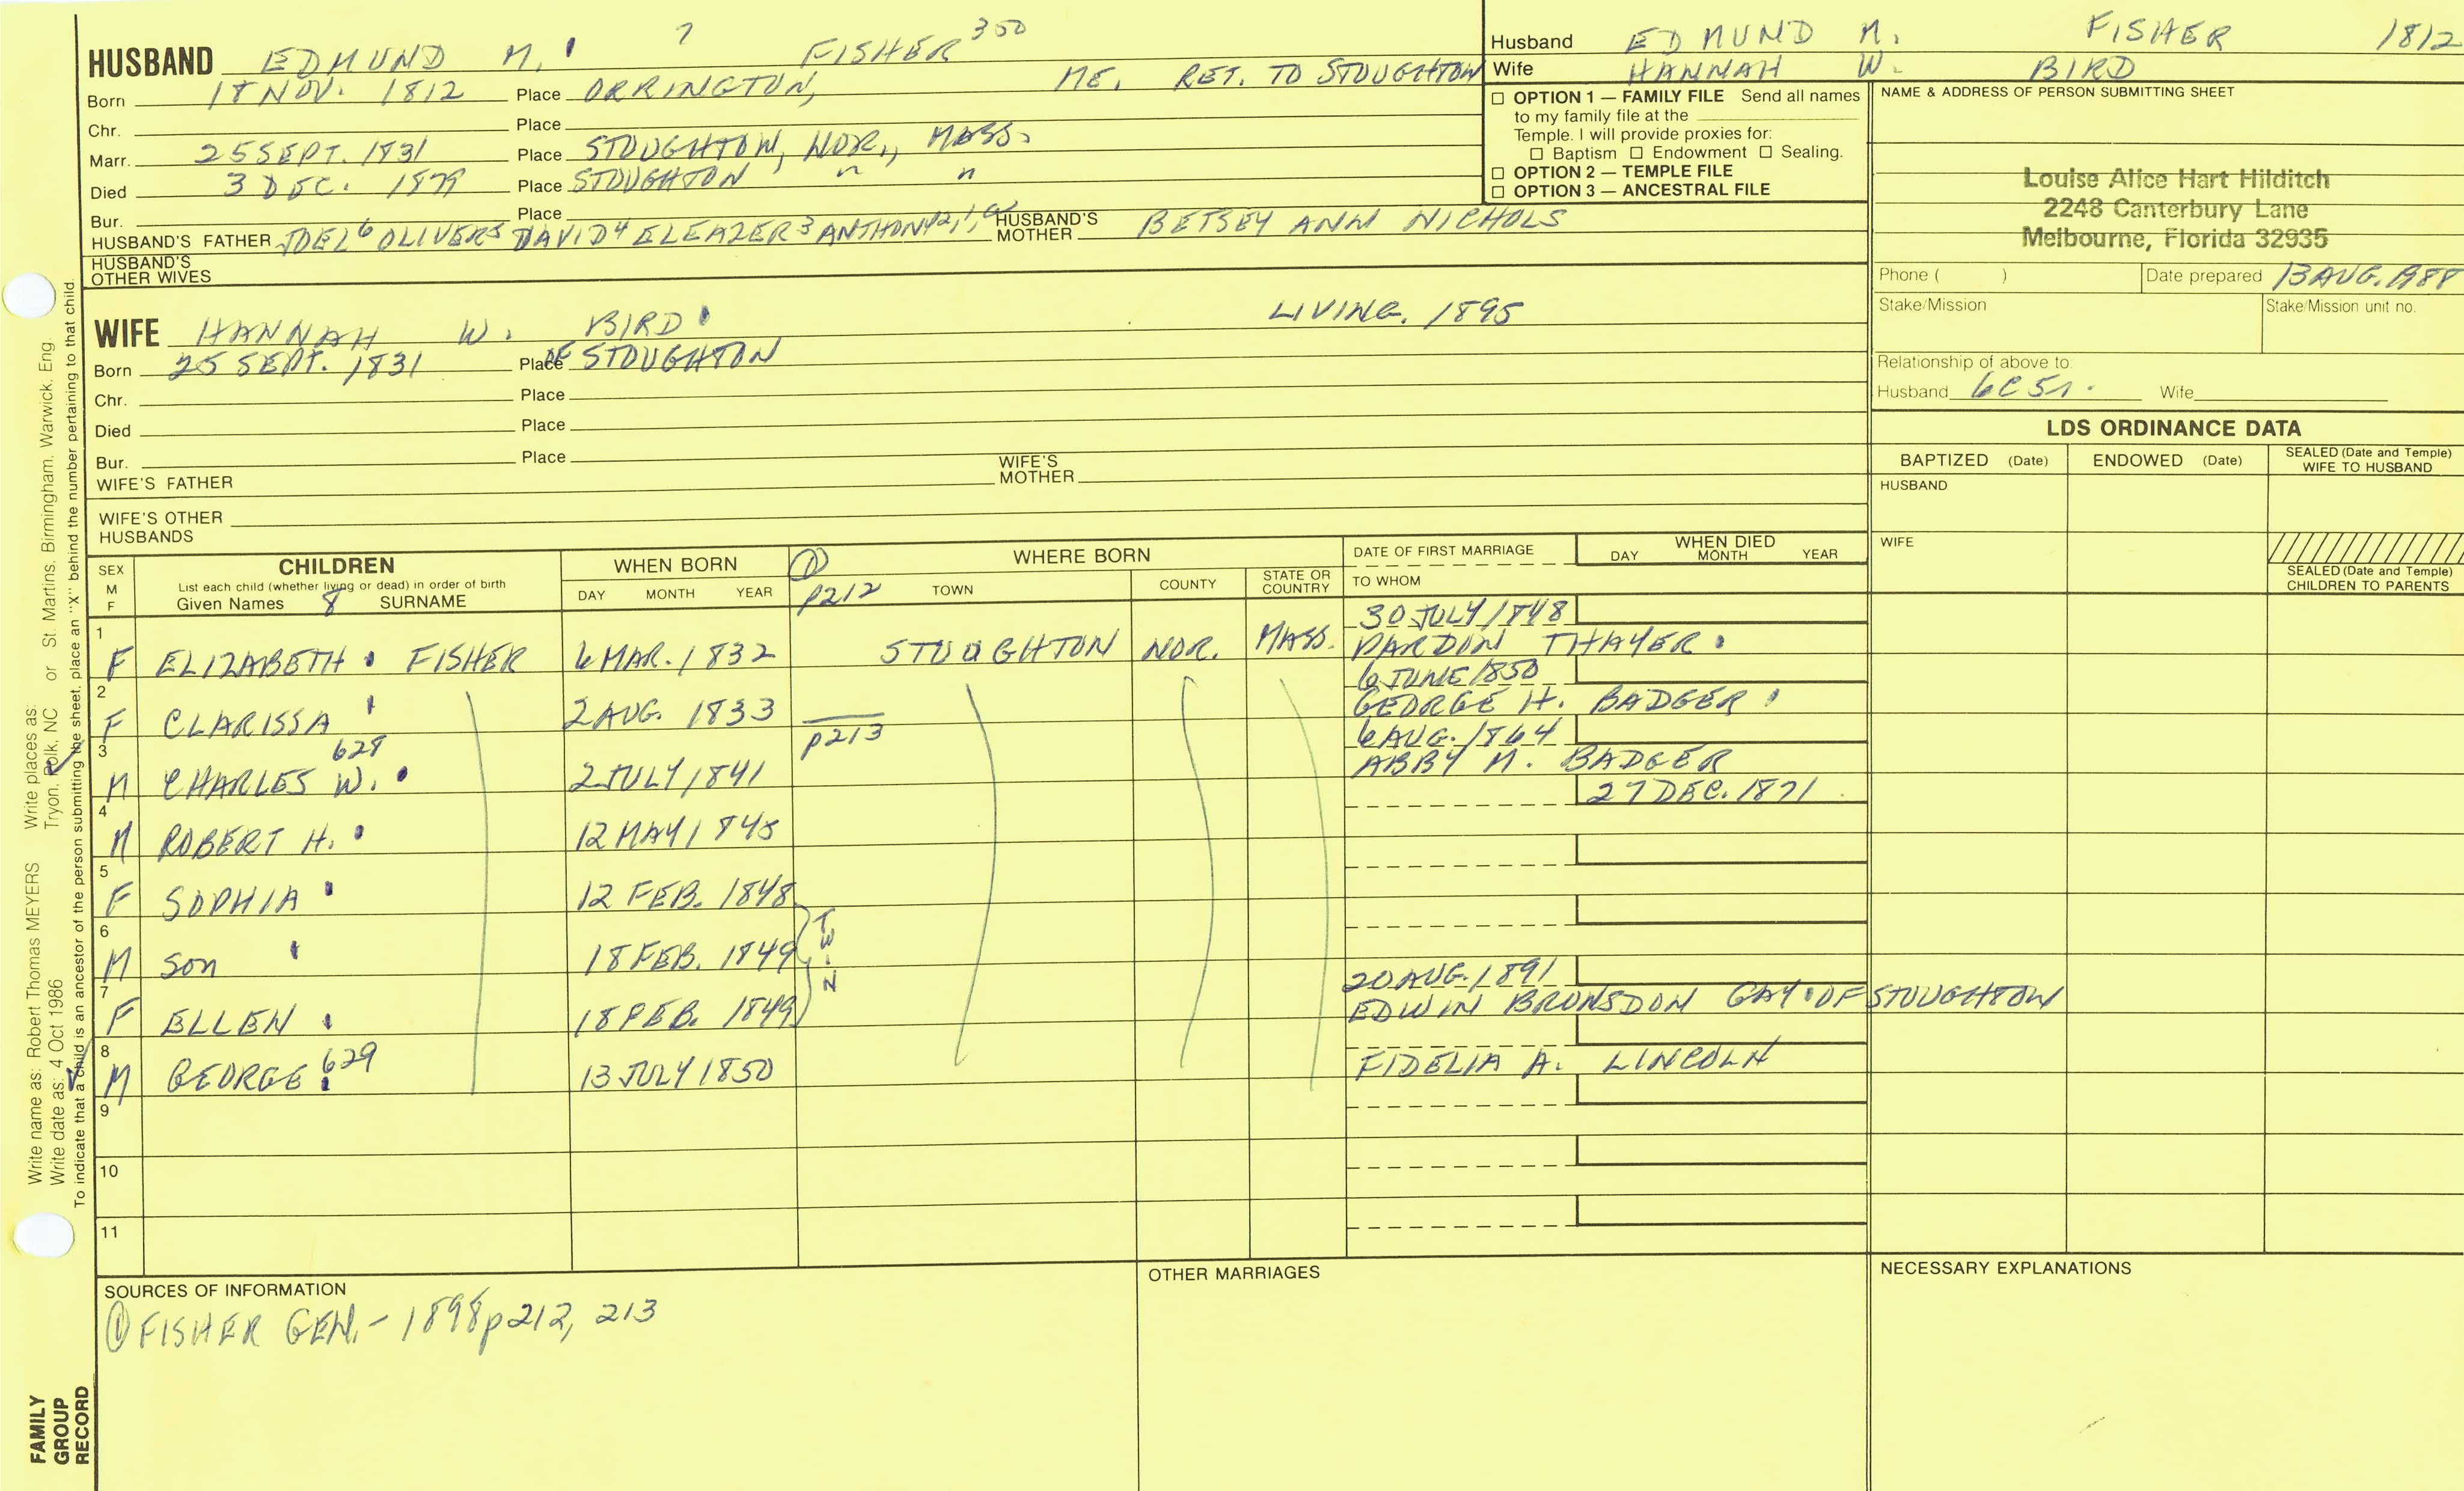 HUSBAND EDMUND M. 7 FISHER 350
Born 18 NOV. 1812 Place ORRINGTON, ME. RET. TO STOUGHTON
Chr. Place
Marr. 25 SEPT. 1831 Place STOUGHTON, NOR., MASS.
Died 3 DEC. 1879 Place STOUGHTON " "
Bur. Place
HUSBAND'S FATHER JOEL6 OLIVER5 DAVID4 ELEAZER3 ANTHONY2,1 HUSBAND'S MOTHER BETSEY ANN NICHOLS
HUSBAND'S OTHER WIVES
WIFE HANNAH W. BIRD LIVING. 1895
Born 25 SEPT. 1831 Place OF STOUGHTON
Chr. Place
Died Place
Bur. Place
WIFE'S FATHER WIFE'S MOTHER
WIFE'S OTHER HUSBANDS
Husband EDMUND M. FISHER 1812
Wife HANNAH W. BIRD
OPTION 1 — FAMILY FILE Send all names
to my family file at the
Temple. I will provide proxies for:
Baptism Endowment Sealing.
OPTION 2 — TEMPLE FILE
OPTION 3 — ANCESTRAL FILE
NAME & ADDRESS OF PERSON SUBMITTING SHEET
Louise Alice Hart Hilditch
2248 Canterbury Lane
Melbourne, Florida 32935
Phone ( ) Date prepared 13 AUG. 1988
Stake/Mission Stake/Mission unit no.
Relationship of above to:
Husband 6C5r. Wife
LDS ORDINANCE DATA
BAPTIZED (Date) ENDOWED (Date) SEALED (Date and Temple) WIFE TO HUSBAND
HUSBAND
WIFE
SEALED (Date and Temple) CHILDREN TO PARENTS
SEX M F
CHILDREN
List each child (whether living or dead) in order of birth
Given Names 8 SURNAME
WHEN BORN
DAY MONTH YEAR
① p212
WHERE BORN
TOWN COUNTY STATE OR COUNTRY
DATE OF FIRST MARRIAGE
TO WHOM
WHEN DIED
DAY MONTH YEAR
30 JULY 1848
1 F ELIZABETH FISHER 6 MAR. 1832 STOUGHTON NOR. MASS. PARDON THAYER
6 JUNE 1850
2 F CLARISSA 2 AUG. 1833 GEORGE H. BADGER
p213
6 AUG. 1864
3 M CHARLES W. 628 2 JULY 1841 ABBY M. BADGER
27 DEC. 1871
4 M ROBERT H. 12 MAY 1845
5 F SOPHIA 12 FEB. 1848
6 M Son 18 FEB. 1849
20 AUG. 1891
7 F ELLEN 18 FEB. 1849 EDWIN BRONSDON GAY OF STOUGHTON
8 M GEORGE 629 13 JULY 1850 FIDELIA A. LINCOLN
9
10
11
SOURCES OF INFORMATION
① FISHER GEN. - 1898 p212, 213
OTHER MARRIAGES
NECESSARY EXPLANATIONS
Write name as: Robert Thomas MEYERS Write places as:
Write date as: 4 Oct 1986 Tryon, Polk, NC or St Martins, Birmingham, Warwick, Eng
To indicate that a child is an ancestor of the person submitting the sheet, place an "X" behind the number pertaining to that child.
FAMILY GROUP RECORD